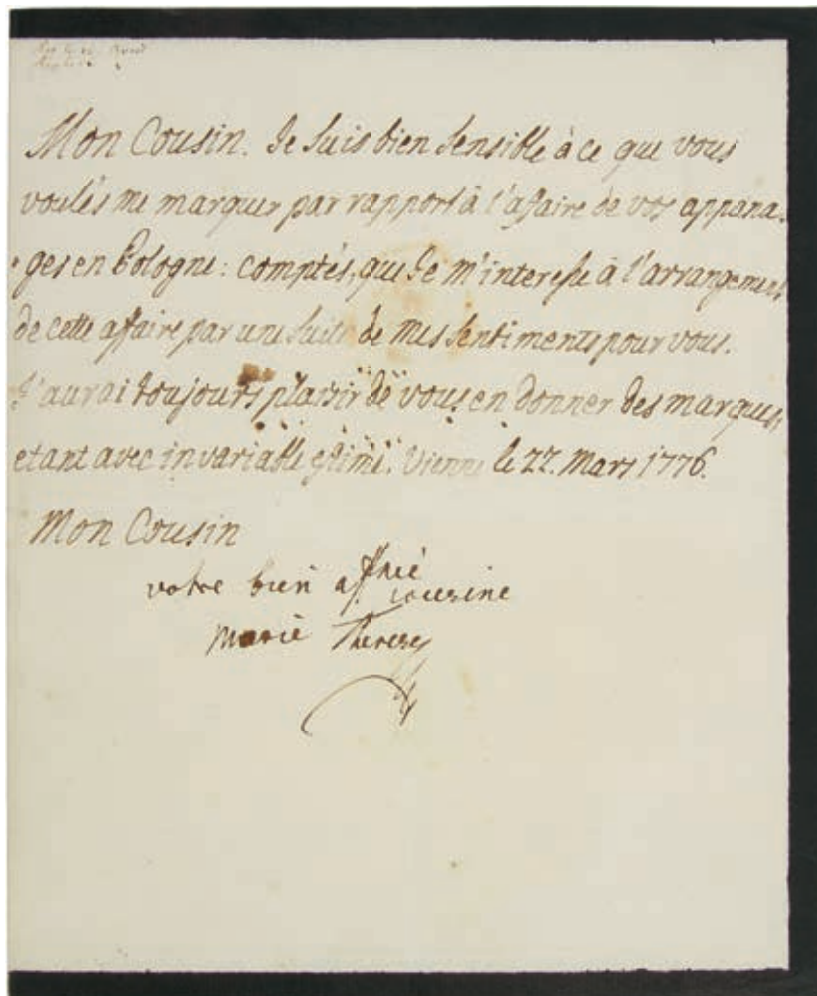 Mon Cousin. Je suis bien sensible à ce que vous
voulés me marquer par rapport à l'affaire de vos appana-
-ges en Pologne: comptés, que Je m'interesse à l'arrangement
de cette affaire par une suite de mes sentiments pour vous.
J'aurai toujours plaisir de vous en donner des marques,
etant avec invariable estime. Vienne le 22. Mars 1776.
Mon Cousin
votre bien affné
cousine
Marie Therese